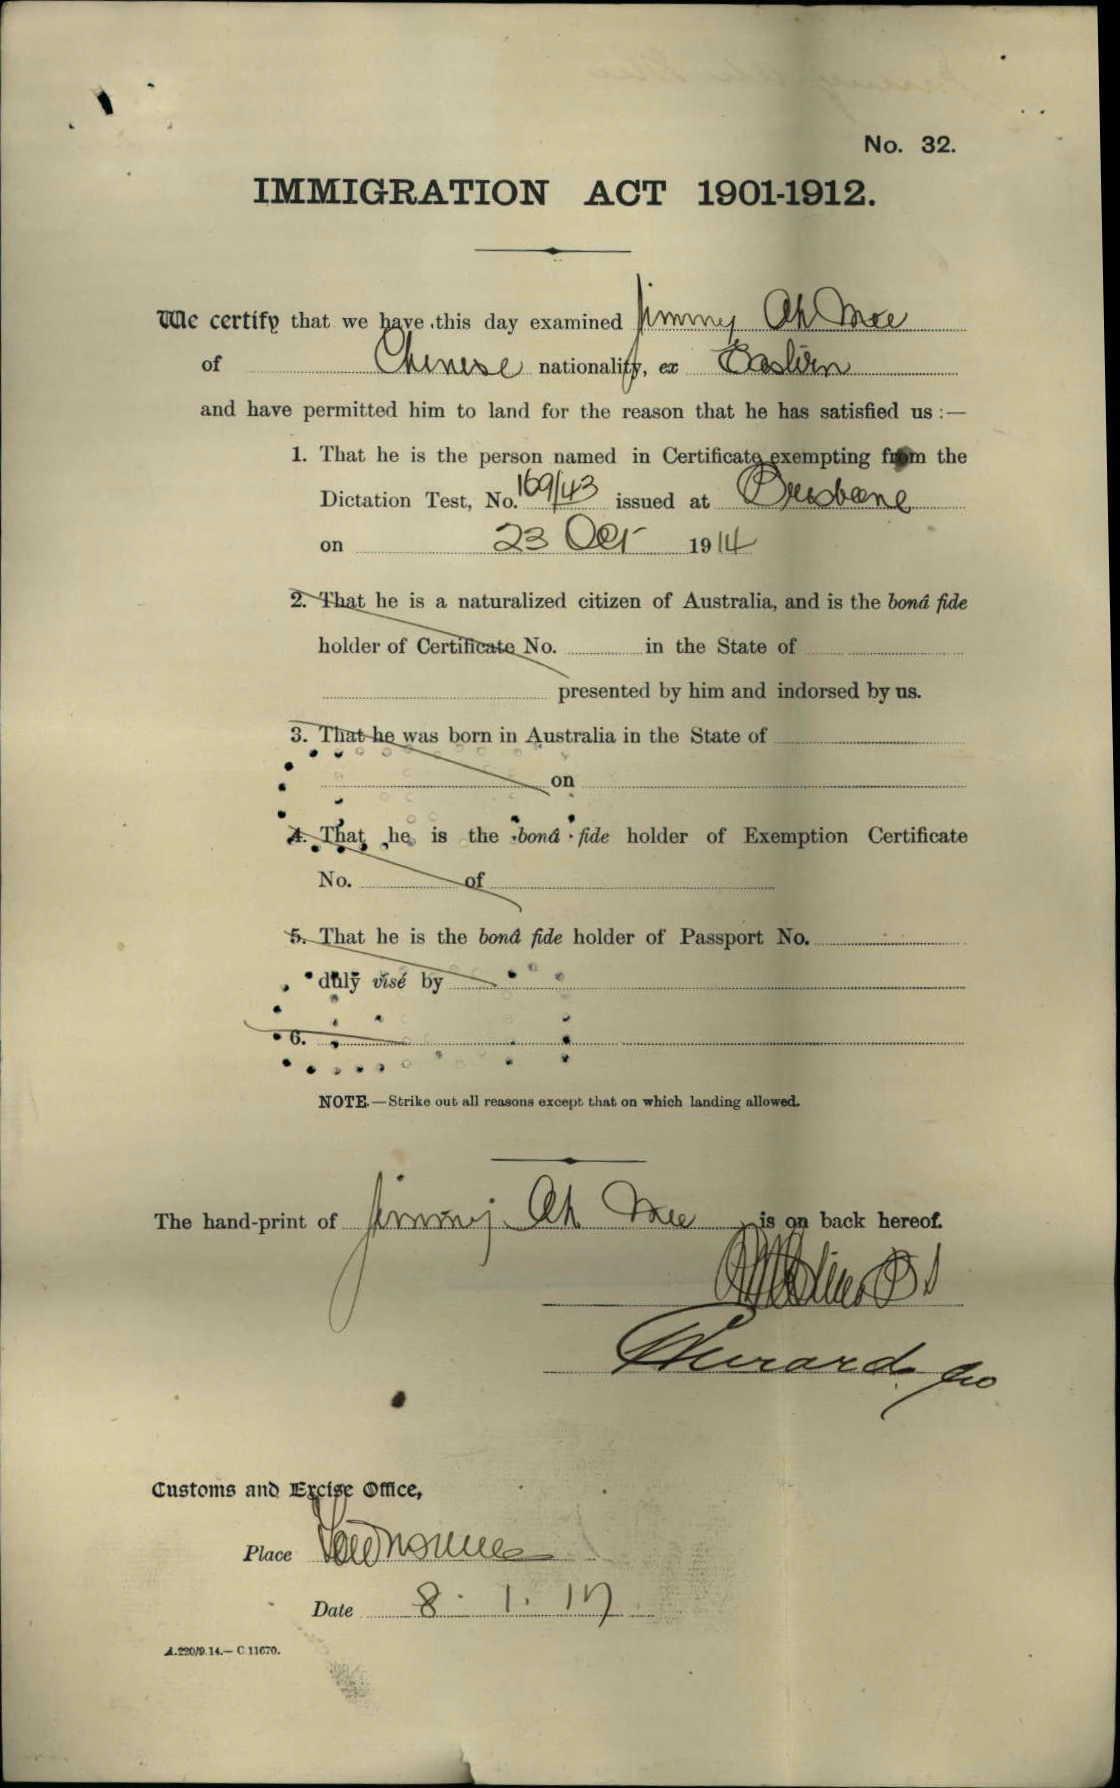 No. 32.
IMMIGRATION ACT 1901-1912.
We certify that we have this day examined Jimmy Ah Moe
of Chinese nationality, ex Eastern
and have permitted him to land for the reason that he has satisfied us :—
1. That he is the person named in Certificate exempting from the
Dictation Test, No. 169/43 issued at Brisbane
on 23 Oct 1914
2. That he is a naturalized citizen of Australia, and is the bonâ fide
holder of Certificate No. in the State of
presented by him and indorsed by us.
3. That he was born in Australia in the State of
on
4. That he is the bonâ fide holder of Exemption Certificate
No. of
5. That he is the bonâ fide holder of Passport No.
duly visé by
6.
NOTE.—Strike out all reasons except that on which landing allowed.
The hand-print of Jimmy Ah Moe is on back hereof.
Customs and Excise Office,
Place Townsville
Date 8. 1. 17
A.220/9.14.— C.11670.